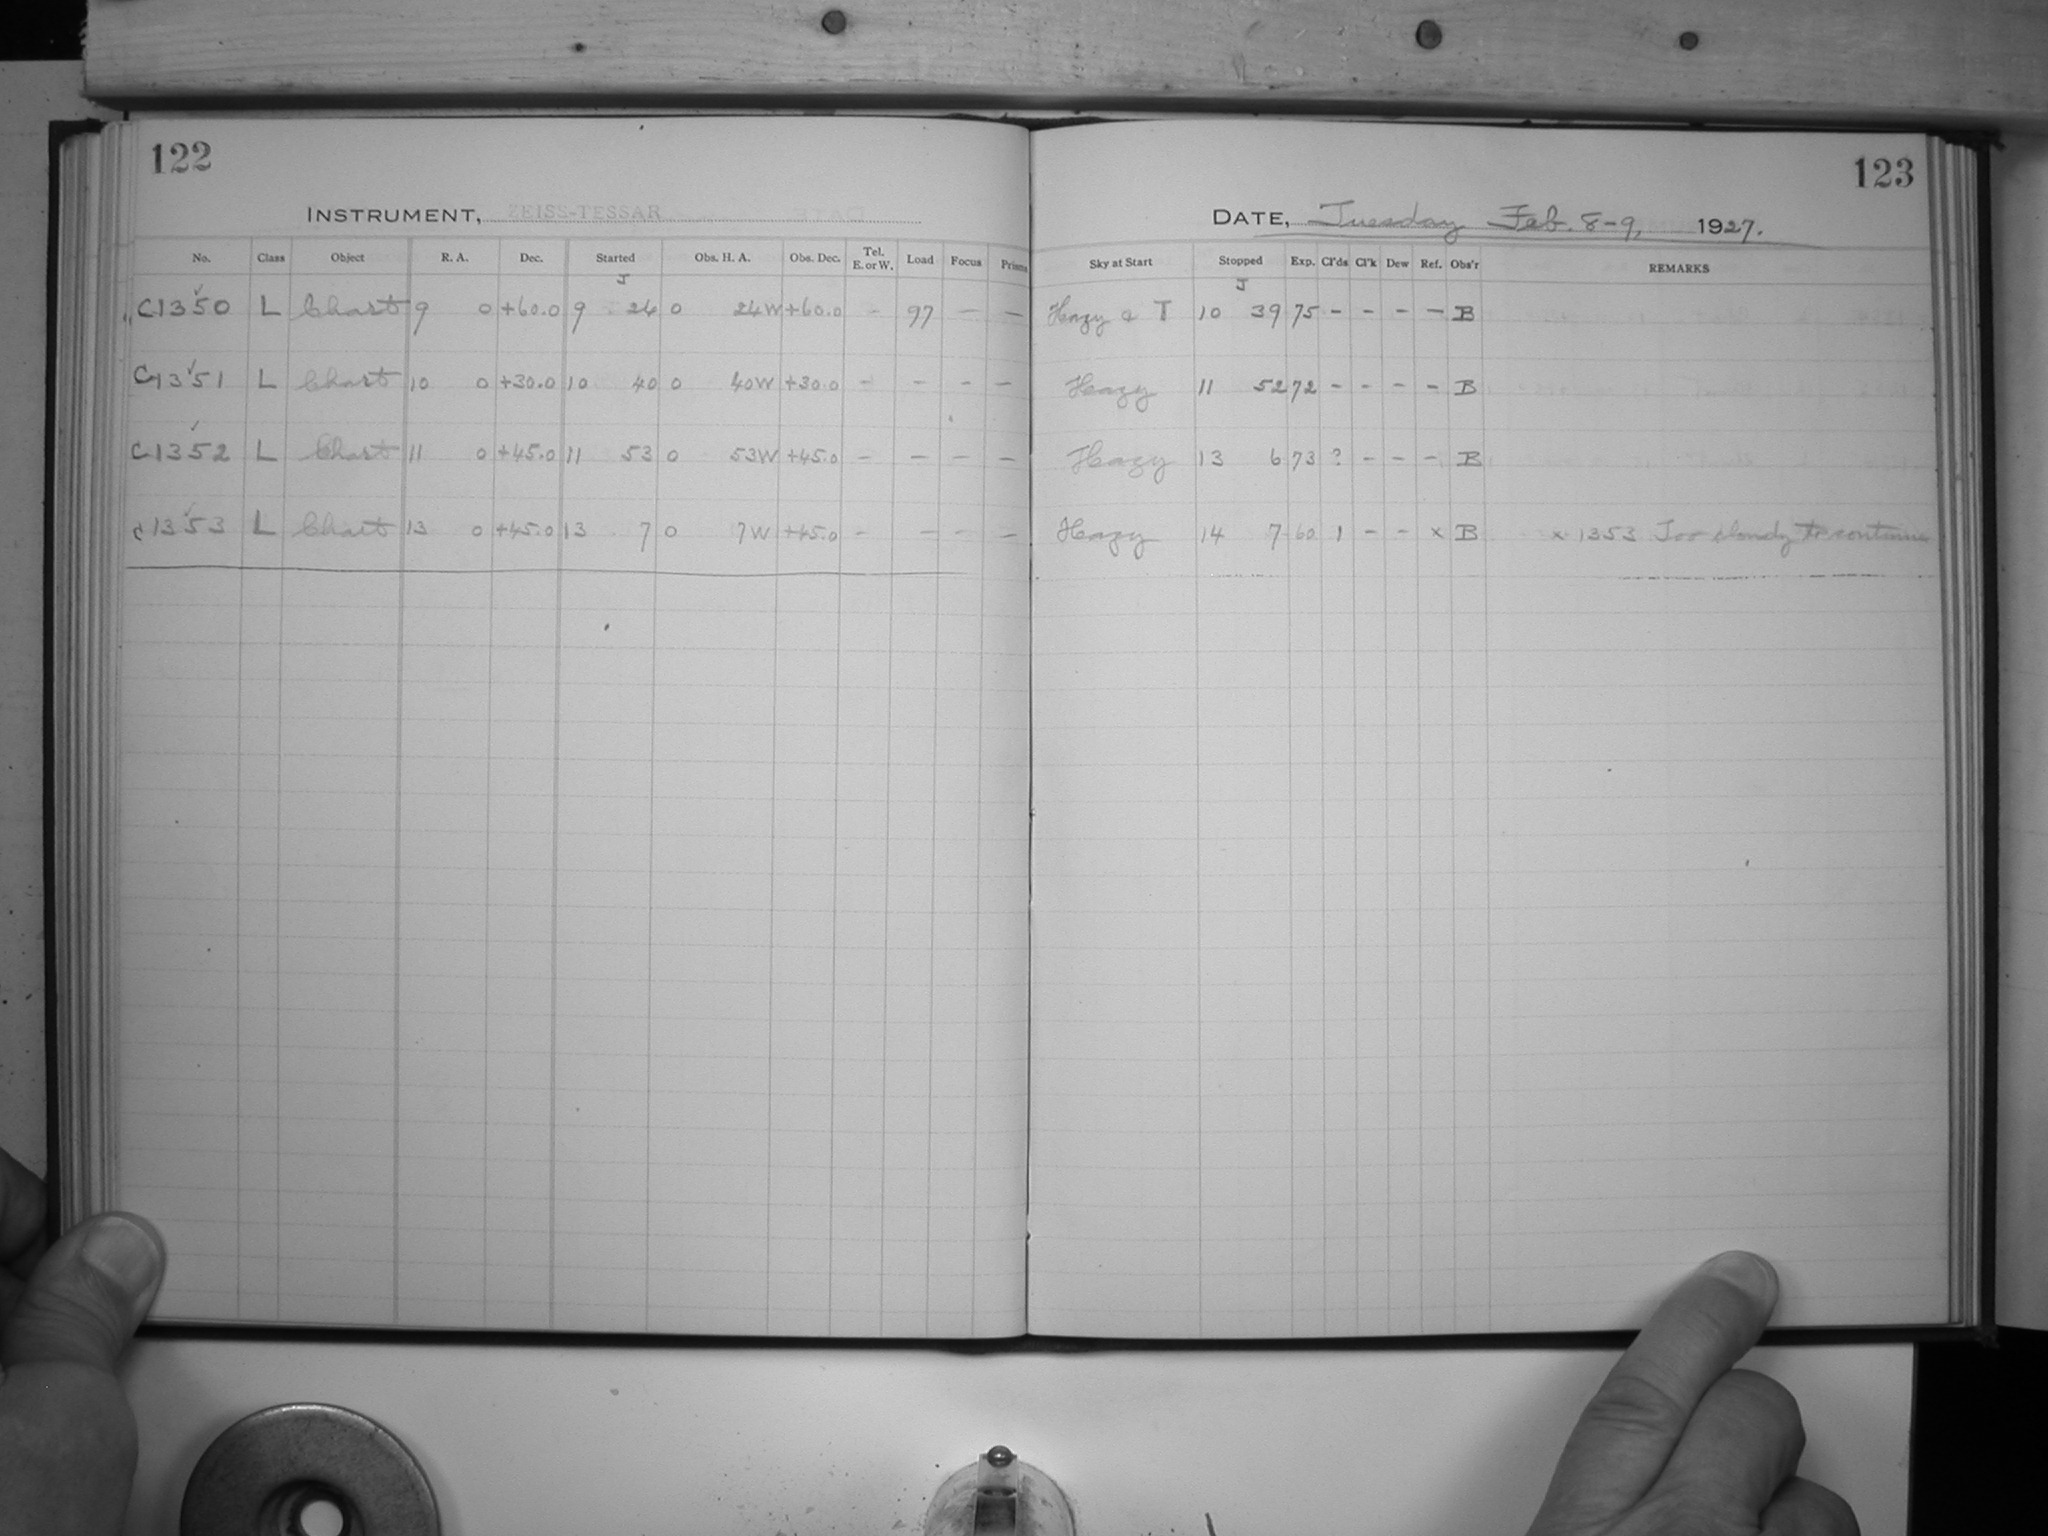 122
INSTRUMENT, ZEISS-TESSAR
No. Class Object R. A. Dec. Started Obs. H. A. Obs. Dec. Tel. E. or W. Load Focus Prisms
J
C1350 L Chart 9 0 +60.0 9 24 0 24W +60.0 - 97 - -
C1351 L Chart 10 0 +30.0 10 40 0 40W +30.0 - - - -
C1352 L Chart 11 0 +45.0 11 53 0 53W +45.0 - - - -
C1353 L Chart 13 0 +45.0 13 7 0 7W +45.0 - - - -
123
DATE, Tuesday Feb. 8-9, 1927.
Sky at Start Stopped Exp. Cl'ds Cl'k Dew Ref. Obs'r REMARKS
J
Hazy & T 10 39 75 - - - - B
Hazy 11 52 72 - - - - B
Hazy 13 6 73 ? - - - B
Hazy 14 7 60 1 - - x B x 1353 Too cloudy to continue